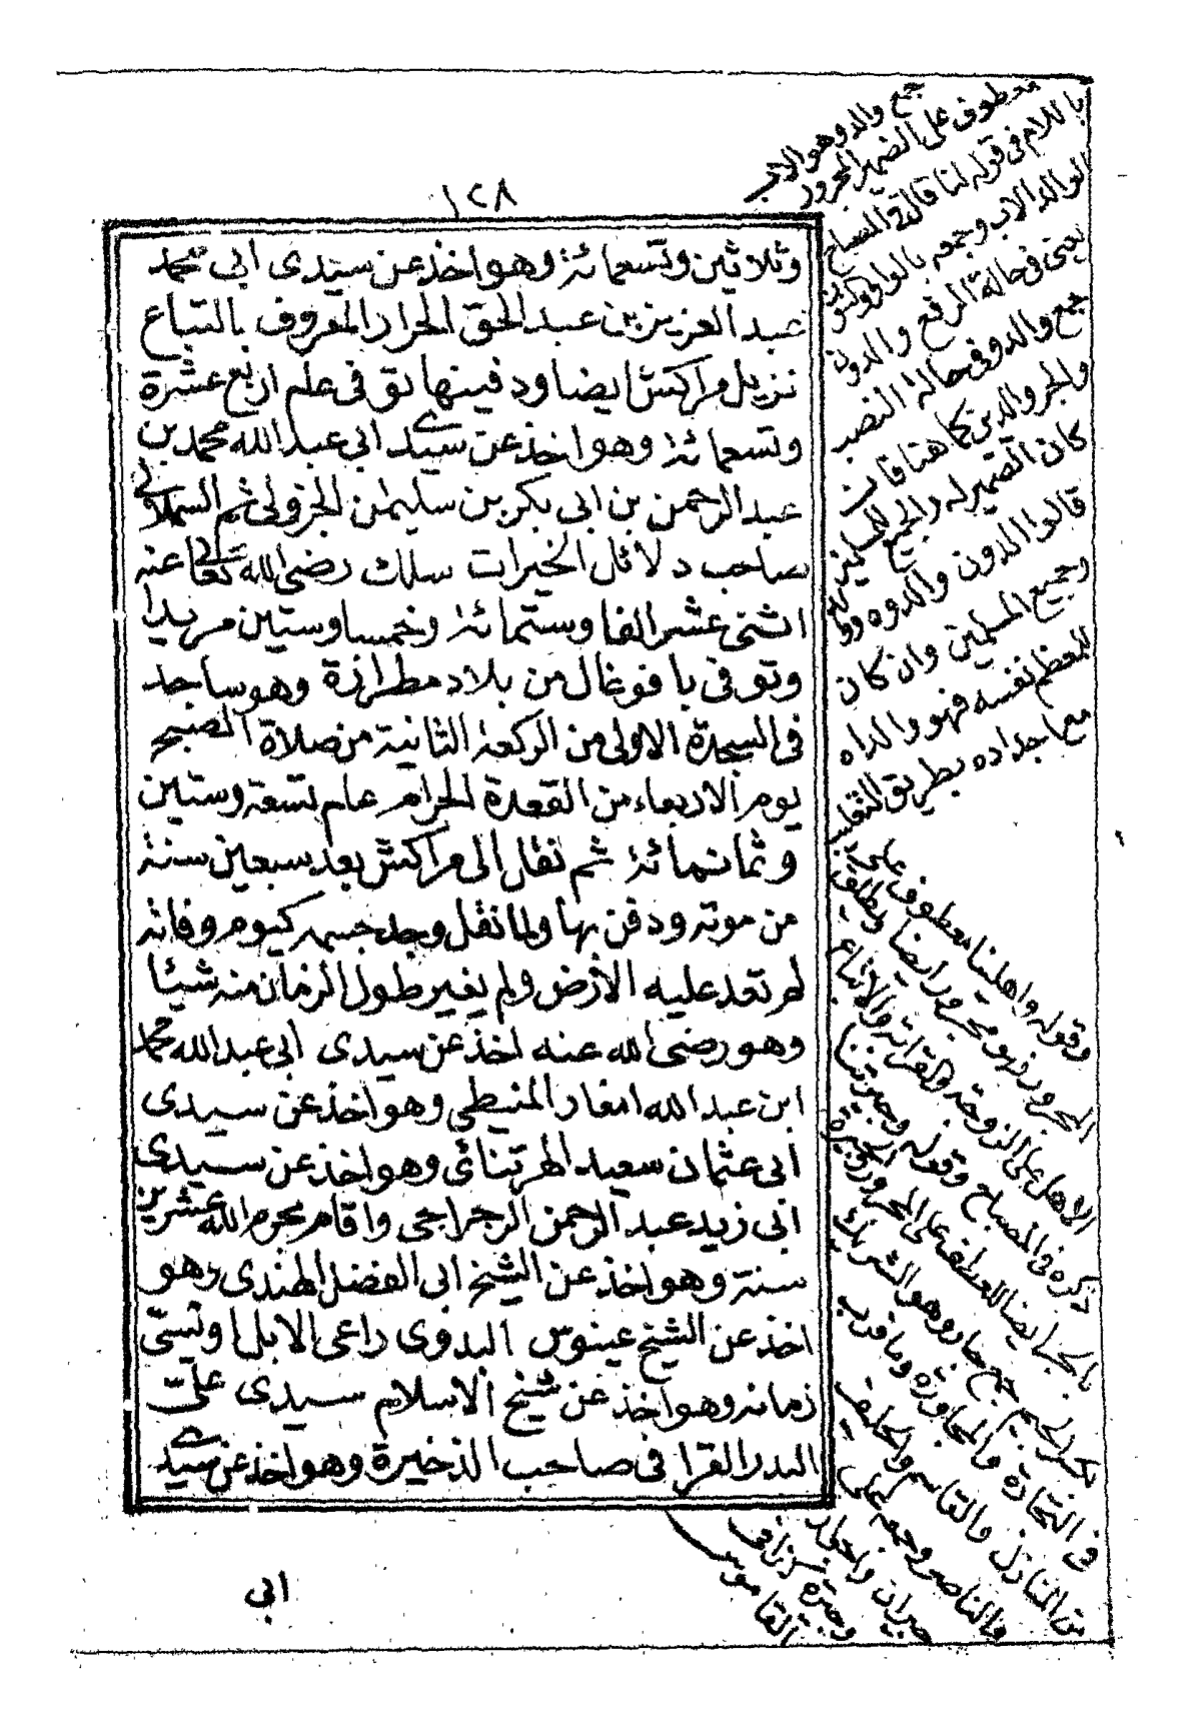 ١٢٨
وثلاثين وتسعمائة وهو اخذ عن سيدى ابى محمد
عبد العزيز بن عبد الحق الحرار المعروف بالتباع
نزيل مراكش ايضا ودفينها توفى عام اربع عشرة
وتسعمائة وهو اخذ عن سيدي ابى عبد الله محمد بن
عبد الرحمن بن ابى بكر بن سليمن الجزولى ثم السملالى
صاحب دلائل الخيرات سلك رضى الله تعالى عنه
اثنى عشر الفا وستمائة وخمسا وستين مريدا
وتوفى بافوغال من بلاد مطرازة وهو ساجد
فى السجدة الاولى من الركعة الثانية من صلاة الصبح
يوم الاربعاء من القعدة الحرام عام تسعة وستين
وثمانمائة ثم نقل الى مراكش بعد سبعين سنة
من موته ودفن بها ولما نقل وجد جسمه كيوم وفاته
لم تعد عليه الأرض ولم يغير طول الزمان منه شيئا
وهو رضى الله عنه اخذ عن سيدى ابى عبد الله محمد
ابن عبد الله امغار المنيطي وهو اخذ عن سيدى
ابى عثمان سعيد الهرتنائى وهو اخذ عن سيدى
ابى زيد عبد الرحمن الرجراجى واقام بحرم الله عشرين
سنة وهو اخذ عن الشيخ ابى الفضل الهندى وهو
اخذ عن الشيخ عينوس البدوى راعى الابل اويسى
زمانه وهو اخذ عن شيخ الاسلام سيدى على
البدر القرافى صاحب الذخيرة وهو اخذ عن سيدي
ابى
جمع والد وهو الاب
معطوف على الضمير المجرور
باللام فى قوله لنا قال فى المصباح
الوالد الاب وجمعه بالواو والنون
يعنى فى حالة الرفع والدون
جمع والد وفى حالة النصب
والجر والدين كما هنا فان
كان الضمير له ولجميع المسلمين
قالوا الدون والدوه
وجميع المسلمين وان كان
للمعظم نفسه فهو والداه
مع اجداده بطريق التغليب
وقوله واهلينا معطوف على
المجرور فهو مجرور ايضا ويطلق
الاهل على الزوجة والقرابة والاتباع
ذكره فى المصباح وقوله وجيرتنا
بالجر ايضا للعطف على المجرور وجيرة
بكسر الجيم جمع جار وهو الشريك
فى التجارة والمجاورة وما قرب
من المنازل والقاسم والحليف
والناصر وجمعه على
جيران واجوار
وجيرة كذا فى
القاموس